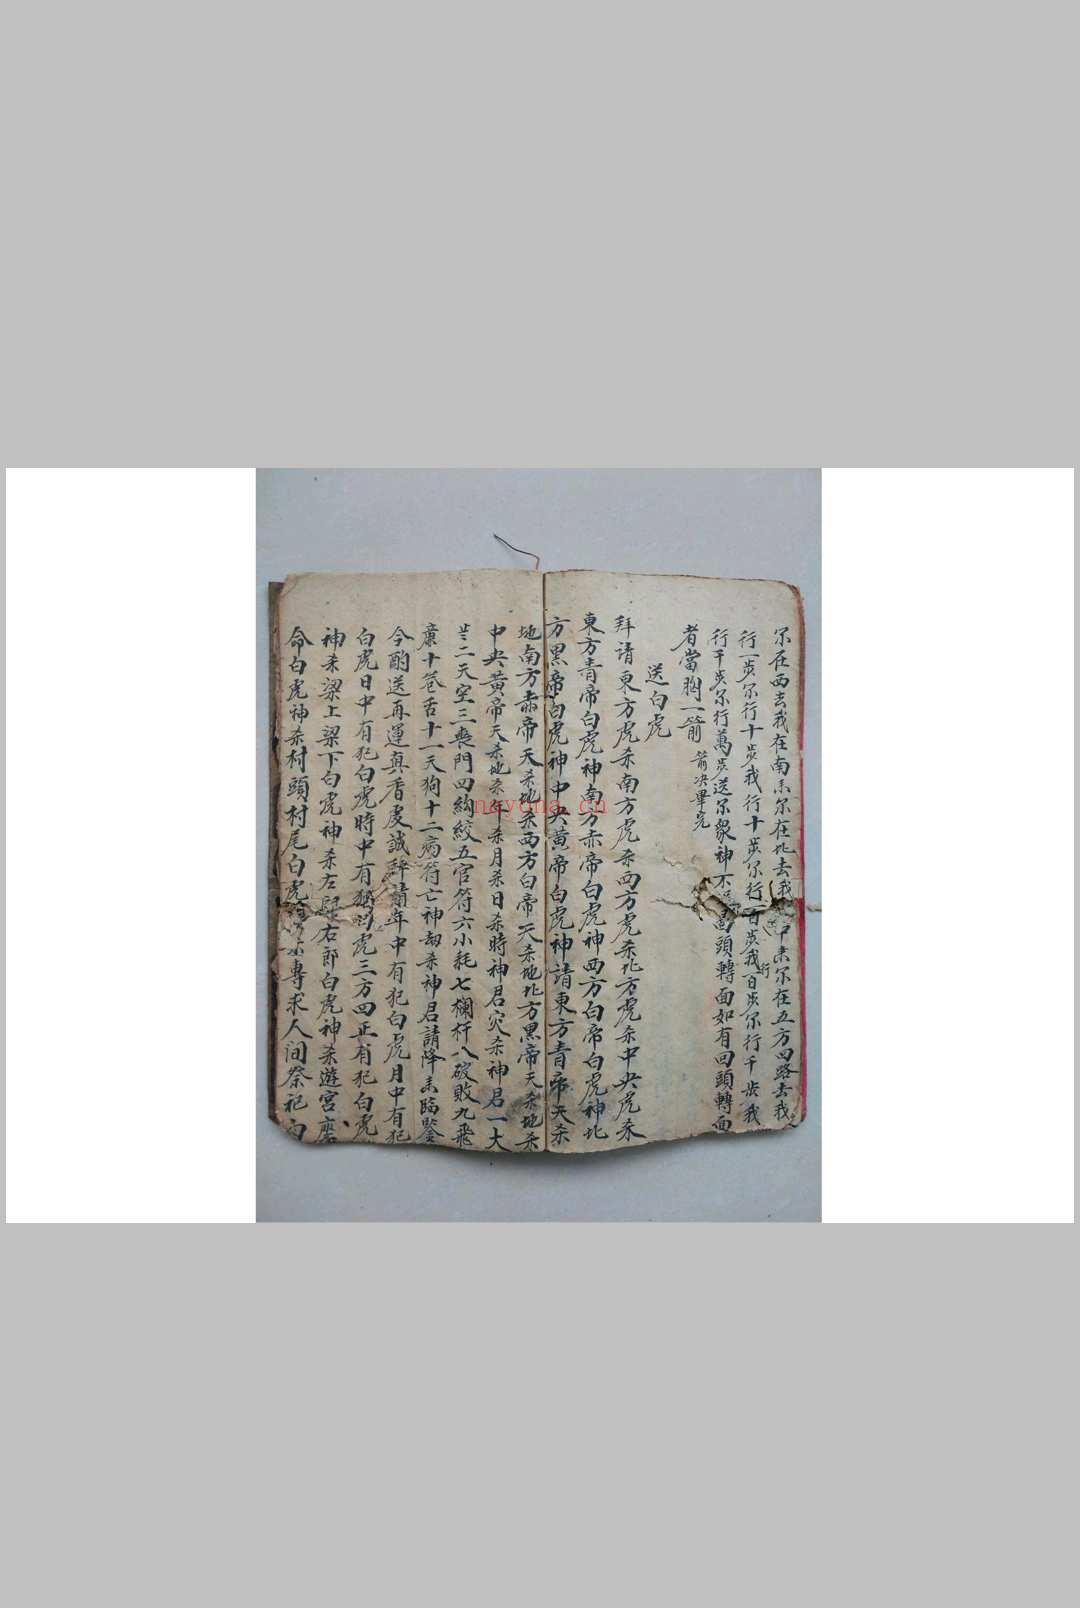 尔在西去我在南来尔在北去我中来尔在五方四路去我
行一步尔行十步我行十步尔行百步我行百步尔行千步我
行千步尔行萬步送尔衆神不回頭轉面如有回頭轉面
者當胸一箭 箭决畢完
送白虎
拜请東方虎杀南方虎杀西方虎杀北方虎杀中央虎杀
東方青帝白虎神南方赤帝白虎神西方白帝白虎神北
方黑帝白虎神中央黄帝白虎神請東方青帝天杀
地南方赤帝天杀地杀西方白帝天杀地北方黑帝天杀地杀
中央黄帝天杀地杀年杀月杀日杀時神君灾杀神君一大
二天空三喪門四絢絞五官符六小耗七欄杆八破敗九飛
廉十卷舌十一天狗十二病符亡神刼杀神君請降来臨鑒
今酌送再運真香虔誠拜請年中有犯白虎月中有犯
白虎日中有犯白虎時中有犯白虎三方四正有犯白虎
神杀梁上梁下白虎神杀左右郎白虎神杀遊宮
命白虎神杀村頭村尾白虎專求人间祭祀白
nayona.cn